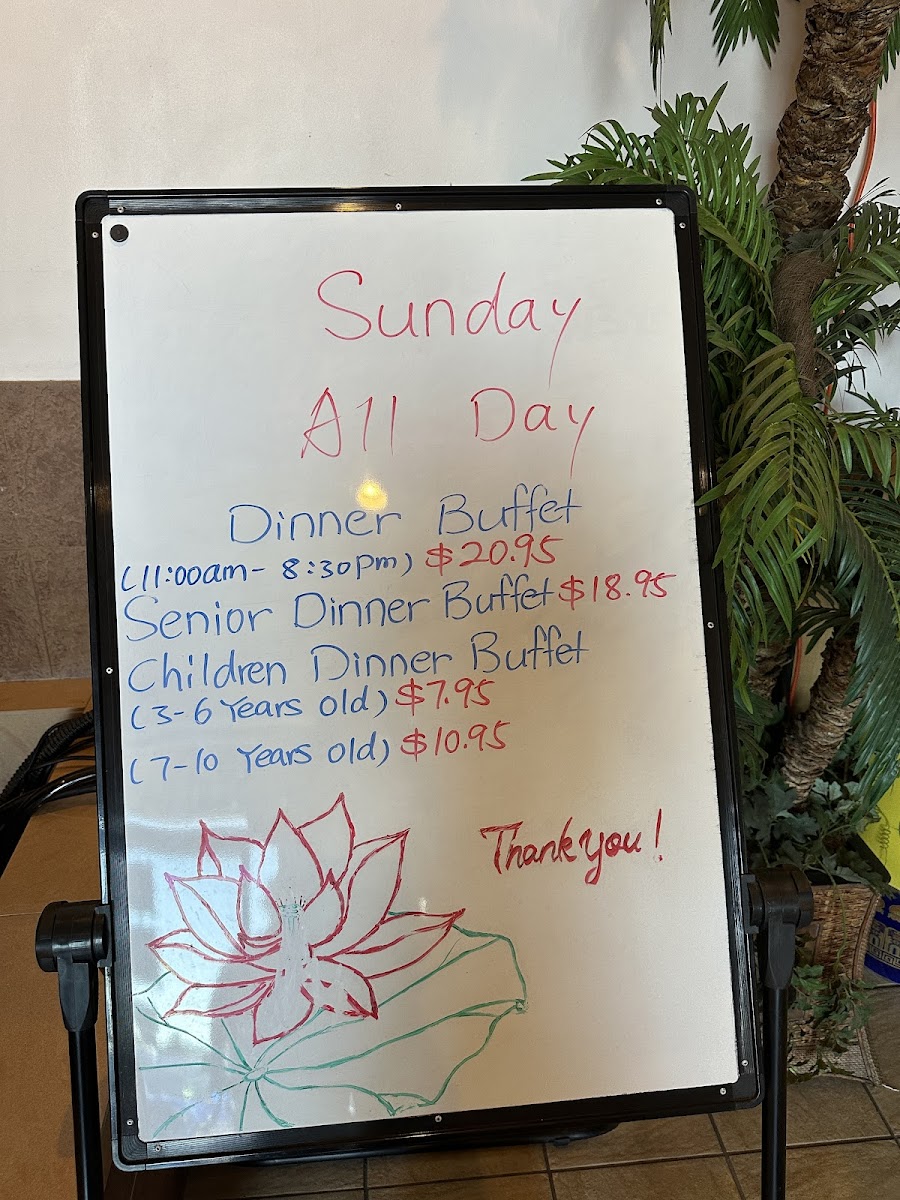 Sunday
All Day
Dinner Buffet
(11:00am - 8:30pm) $20.95
Senior Dinner Buffet $18.95
Children Dinner Buffet
(3-6 Years old) $7.95
(7-10 Years old) $10.95
Thank you!